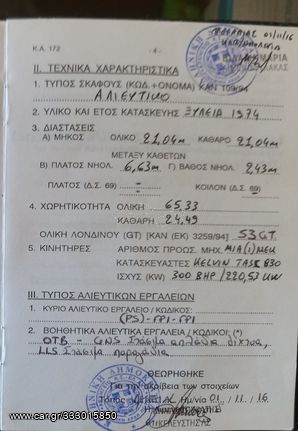 Κ.Α. 172
- 4 -
01/11/16
II. ΤΕΧΝΙΚΑ ΧΑΡΑΚΤΗΡΙΣΤΙΚΑ
1. ΤΥΠΟΣ ΣΚΑΦΟΥΣ (ΚΩΔ.+ΟΝΟΜΑ) ΚΑΝ 109/94
ΑΛΙΕΥΤΙΚΟ
2. ΥΛΙΚΟ ΚΑΙ ΕΤΟΣ ΚΑΤΑΣΚΕΥΗΣ ΞΥΛΕΙΑ 1974
3. ΔΙΑΣΤΑΣΕΙΣ
Α) ΜΗΚΟΣ ΟΛΙΚΟ 21,04m ΚΑΘΑΡΟ 21,04m
ΜΕΤΑΞΥ ΚΑΘΕΤΩΝ
Β) ΠΛΑΤΟΣ ΝΗΟΛ. 6,63m Γ) ΒΑΘΟΣ ΝΗΟΛ. 2,43m
ΠΛΑΤΟΣ (Δ.Σ. 69) - ΚΟΙΛΟΝ (Δ.Σ. 69)
4. ΧΩΡΗΤΙΚΟΤΗΤΑ ΟΛΙΚΗ 65,33
ΚΑΘΑΡΗ 24,49
ΟΛΙΚΗ ΛΟΝΔΙΝΟΥ (GT) [ΚΑΝ (ΕΚ) 3259/94] 53GT
5. ΚΙΝΗΤΗΡΕΣ ΑΡΙΘΜΟΣ ΠΡΟΩΣ. ΜΗΧ. ΜΙΑ(1)ΜΕΚ
ΚΑΤΑΣΚΕΥΑΣΤΗΣ KELVIN TASK 830
ΙΣΧΥΣ (KW) 300 BHP /220,57 KW
III. ΤΥΠΟΣ ΑΛΙΕΥΤΙΚΩΝ ΕΡΓΑΛΕΙΩΝ
1. ΚΥΡΙΟ ΑΛΙΕΥΤΙΚΟ ΕΡΓΑΛΕΙΟ / ΚΩΔΙΚΟΣ:
(PS)-ΓΡΙ-ΓΡΙ
2. ΒΟΗΘΗΤΙΚΑ ΑΛΙΕΥΤΙΚΑ ΕΡΓΑΛΕΙΑ / ΚΩΔΙΚΟΙ: (*)
OTB - GNS Στάσιμα απλάδια δίχτυα,
LLS Στάσιμα παραγάδια
ΘΕΩΡΗΘΗΚΕ
Για την ακρίβεια των στοιχείων
Τόπος Ημ/νία 01 / 11 / 16
www.car.gr/333015850